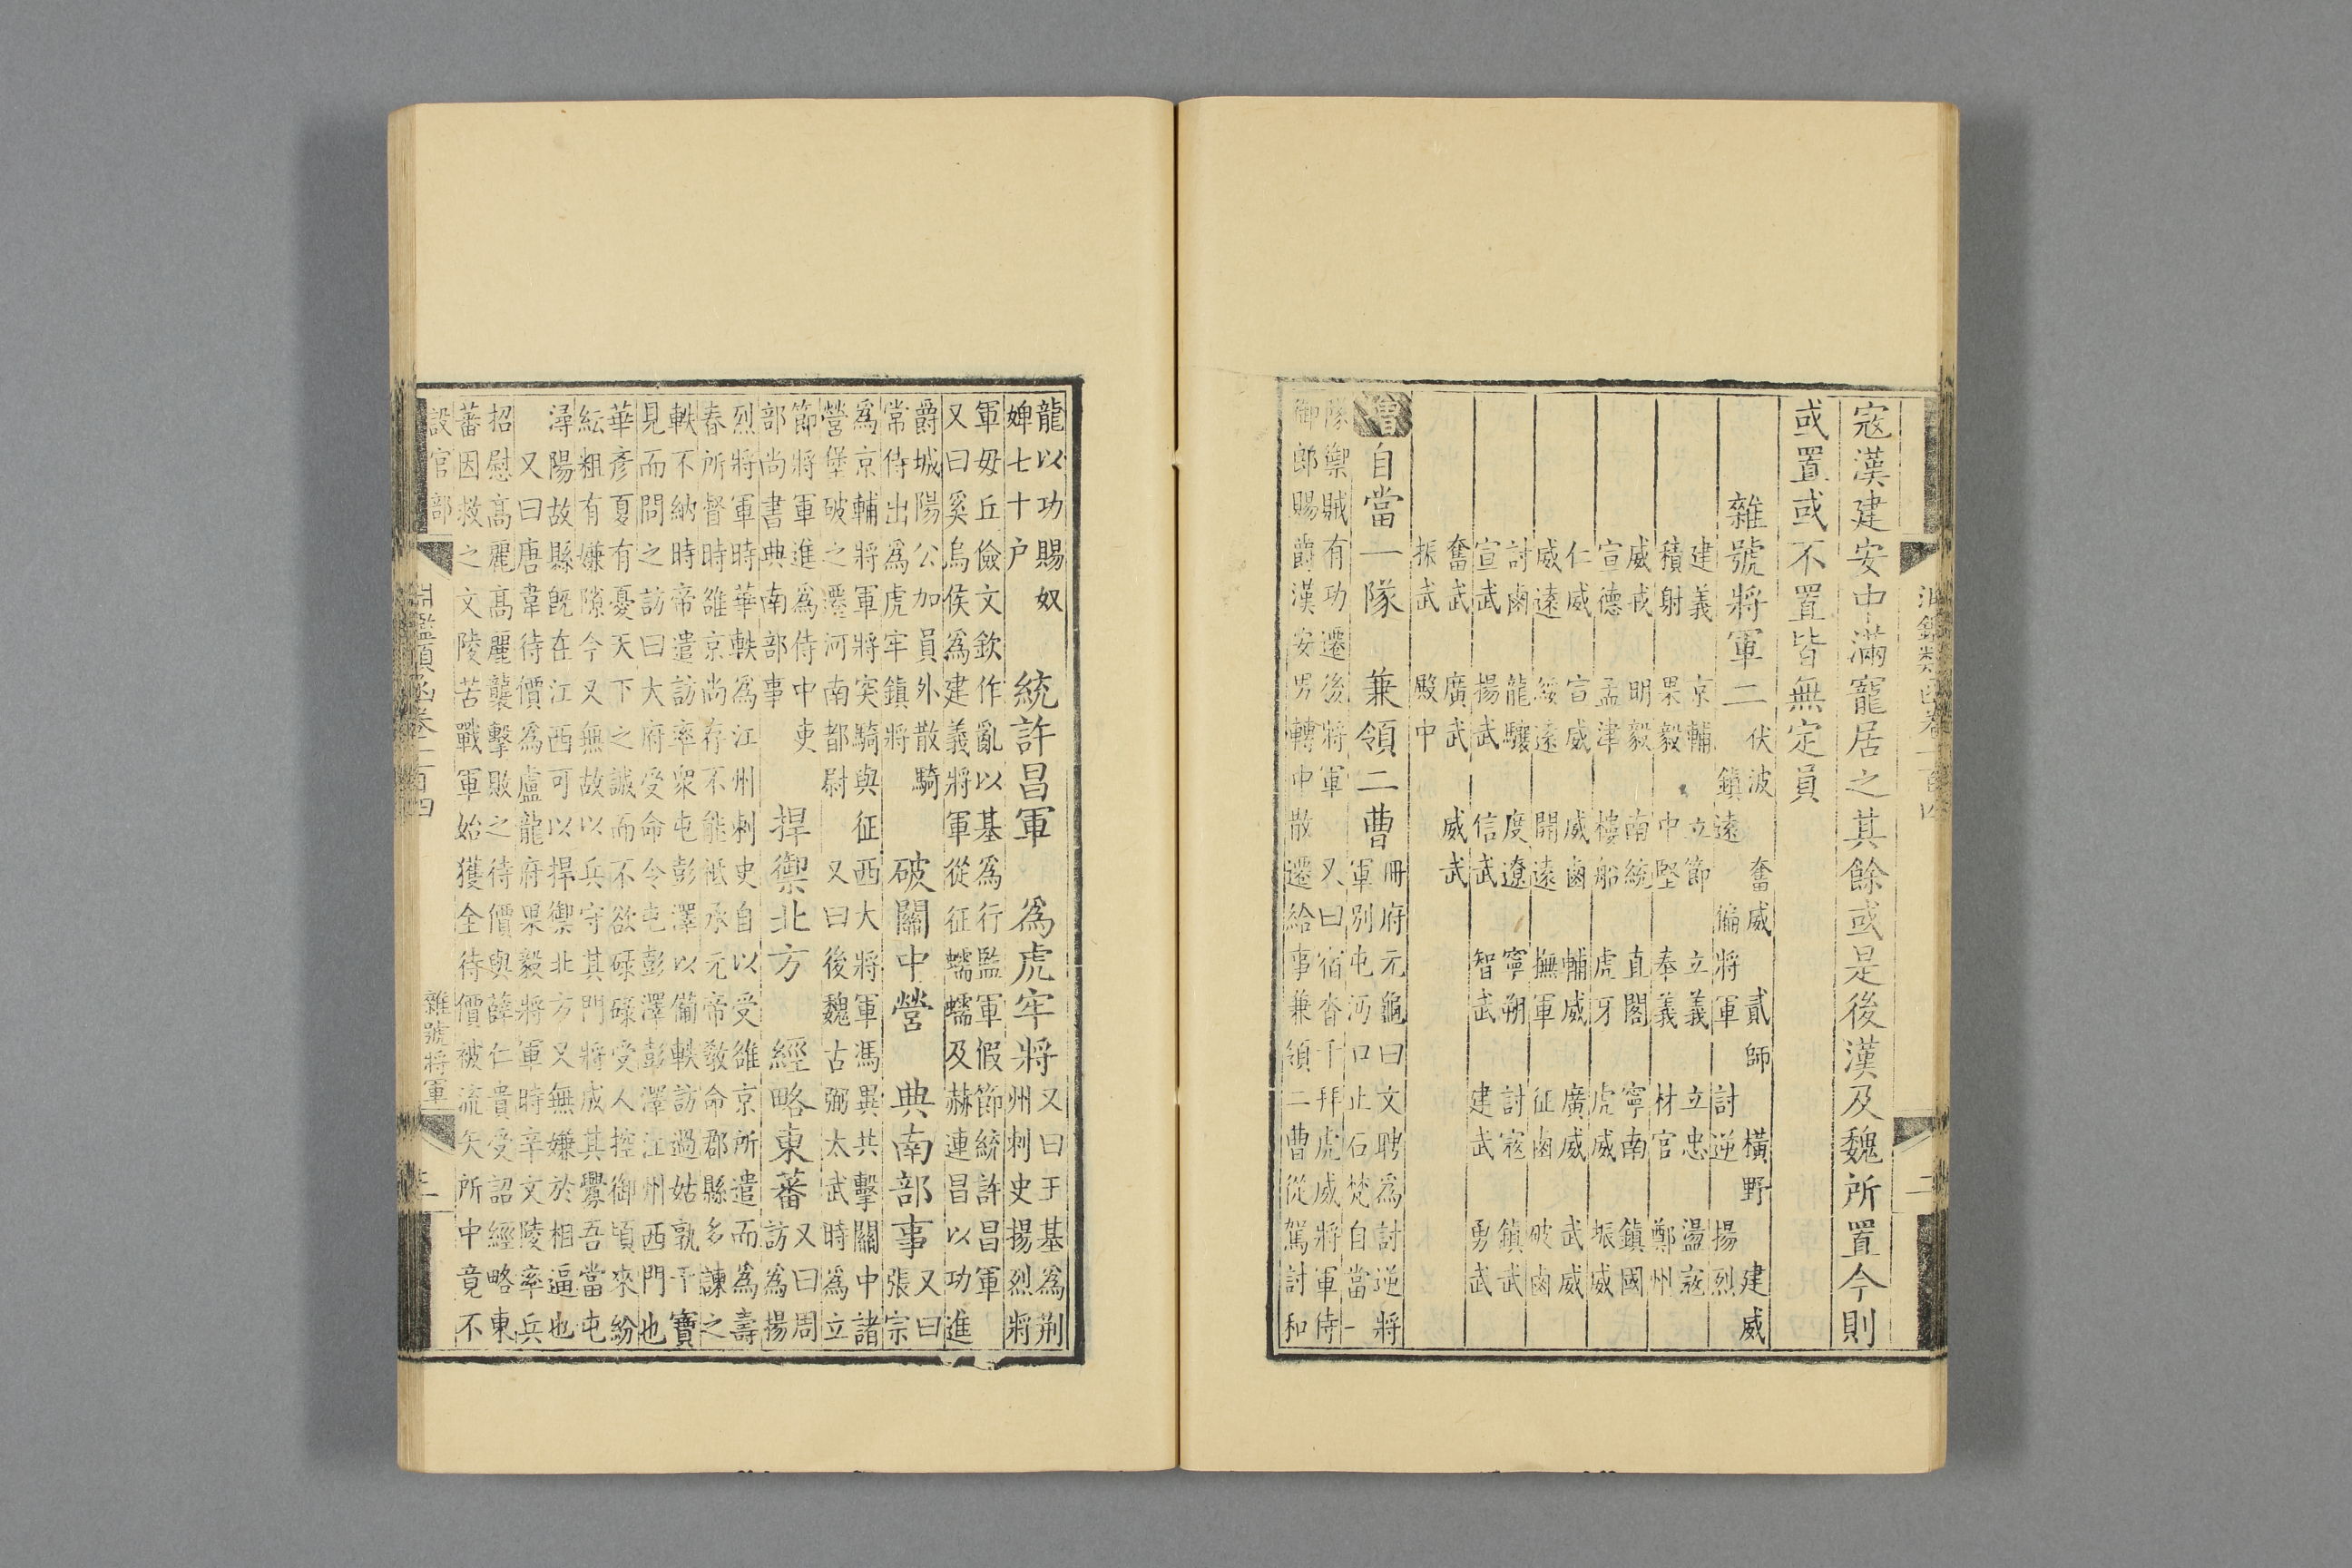 淵鑑類函卷一百四 二
寇漢建安中滿寵居之其餘或是後漢及魏所置今則
或置或不置皆無定員
雜號將軍二
伏波 奮威 貳師 橫野 建威
鎮遠 偏將軍 討逆 揚烈
建義 京輔 立節 立義 立忠 盪寇
積射 果毅 中堅 奉義 材官 鄭州
威戎 明毅 南統 直閣 寧南 鎮國
宣德 孟津 樓船 虎牙 虎威 振威
仁威 宣威 威鹵 輔威 廣威 武威
威遠 綏遠 開遠 撫軍 征鹵 破鹵
討鹵 龍驤 度遼 寧朔 討寇 鎮武
宣武 揚武 信武 智武 建武 勇武
奮武 廣武 威武
振武 殿中
增 自當一隊 兼領二曹
冊府元龜曰文聘為討逆將
軍別屯沔口止石梵自當一
隊禦賊有功遷後將軍 又曰宿沓干拜虎威將軍侍
御郎賜爵漢安男轉中散遷給事兼領二曹從駕討和
龍以功賜奴
婢七十户
統許昌軍 為虎牢將
又曰王基為荆
州刺史揚烈將
軍毋丘儉文欽作亂以基為行監軍假節統許昌軍
又曰奚烏侯為建義將軍從征蠕蠕及赫連昌以功進
爵城陽公加員外散騎
常侍出為虎牢鎮將
破關中營 典南部事
又曰
張宗
為京輔將軍將突騎與征西大將軍馮異共擊關中諸
營堡破之遷河南都尉 又曰後魏古弼太武時為立
節將軍進為侍中吏
部尚書典南部事
捍禦北方 經略東蕃
又曰周
訪為揚
烈將軍時華軼為江州刺史自以受雒京所遣而為壽
春所督時雒京尚存不能祗承元帝敎命郡縣多諫之
軼不納時帝遣訪率衆屯彭澤以備軼訪過姑孰干寶
見而問之訪曰大府受命令屯彭澤彭澤江州西門也
華彥夏有憂天下之誠而不欲碌碌受人控御頃來紛
紜粗有嫌隙今又無故以兵守其門將成其釁吾當屯
潯陽故縣旣在江西可以捍禦北方又無嫌於相逼也
又曰唐韋待價為盧龍府果毅將軍時辛文陵率兵
招慰高麗高麗襲擊敗之待價與薛仁貴受詔經略東
蕃因救之文陵苦戰軍始獲全待價被流矢所中竟不
設官部 淵鑑類函卷一百四 雜號將軍 三